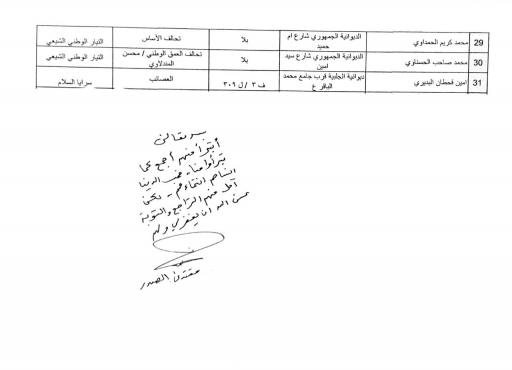 29 محمد كريم الحمداوي الديوانية الجمهوري شارع ام حميد بلا تحالف الأساس التيار الوطني الشيعي
30 محمد صاحب الحسناوي الديوانية الجمهوري شارع سيد امين بلا تحالف العمق الوطني / محسن المندلاوي التيار الوطني الشيعي
31 امين قحطان البديري ديوانية الجلبية قرب جامع محمد الباقر ع ف ٣ / ل ٣٠٩ العصائب سرايا السلام
أتبرأ منهم أجمع كما
تبرأوا منا
انتماءهم
آمل منهم التراجع والتوبة
عسى الله ان يغفر لي ولهم
مقتدى الصدر